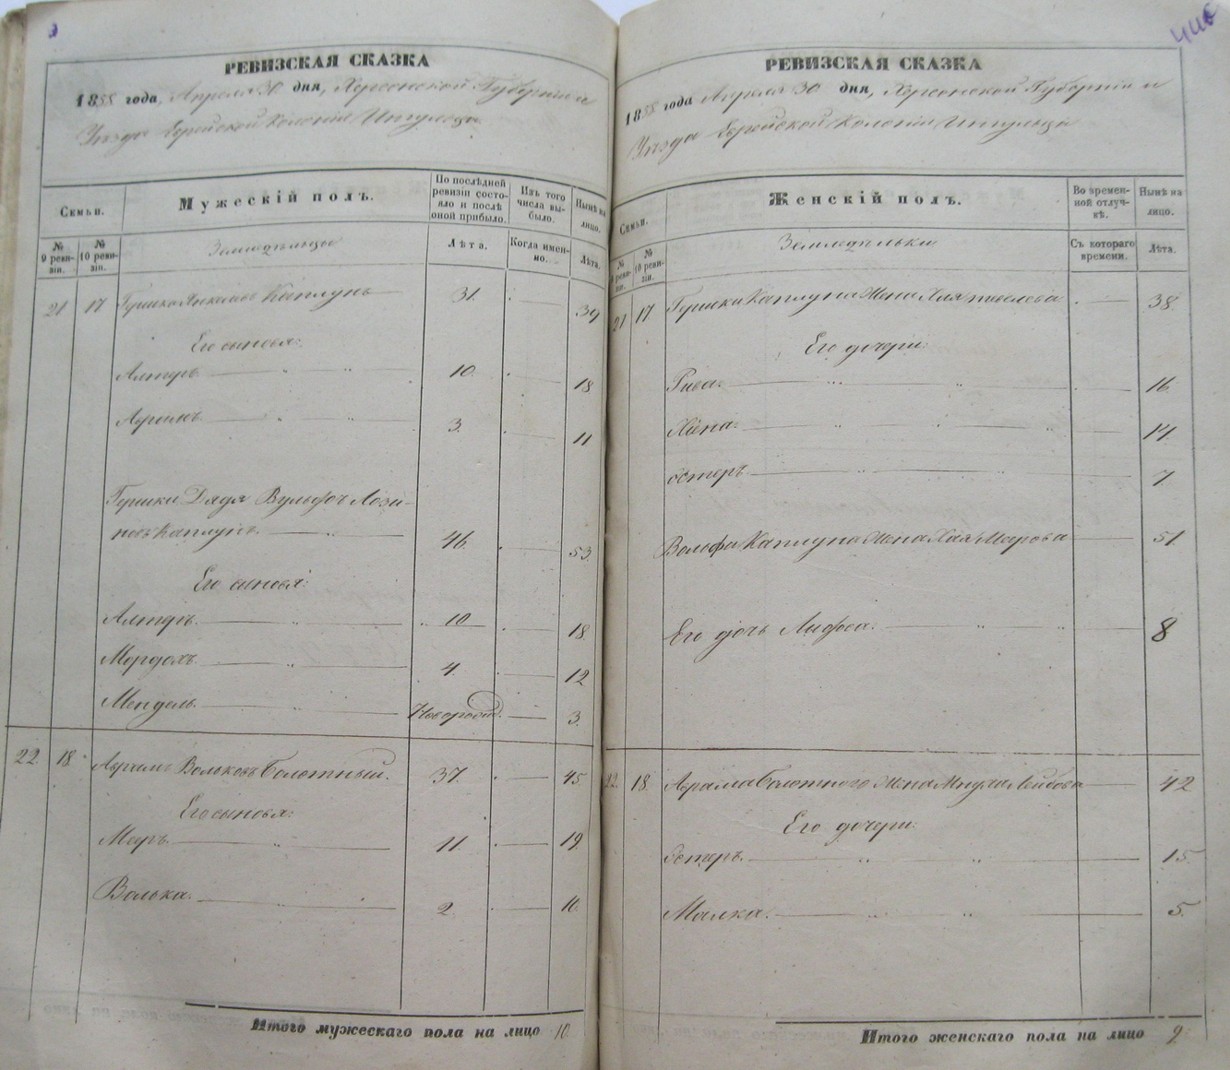 446
РЕВИЗСКАЯ СКАЗКА
1858 года, Апреля 30 дня, Херсонской Губерніи и
Уѣзда Еврейской Колоніи Ингульца
Семьи.
Мужескій полъ.
По послѣдней ревизіи состояло и послѣ оной прибыло.
Изъ того числа выбыло.
Нынѣ на лицо.
№ 9 ревизіи.
№ 10 ревизіи.
Земледѣльцы
Лѣта.
Когда именно.
Лѣта.
21 17 Гершко Янкелевъ Каплунъ 31. 39
Его сыновья:
Алтеръ 10. 18
Абрамъ 3. 11
Гершки Дядя Вульфъ
Каплунъ 46. 53
Его сыновья:
Алтеръ 10 18
Мордохъ 4. 12
Мендель Новорожд. 3.
22 18 Абрамъ Вольковъ Болотный. 37. 45
Его сыновья:
Мееръ. 11. 19.
Волька. 2. 10.
Итого мужескаго пола на лицо 10.
РЕВИЗСКАЯ СКАЗКА
1858 года Апреля 30 дня, Херсонской Губерніи и
Уѣзда Еврейской Колоніи Ингульца
Семьи.
Женскій полъ.
Во временной отлучкѣ.
Нынѣ на лицо.
№ 9 ревизіи.
№ 10 ревизіи.
Земледѣльки
Съ котораго времени.
Лѣта.
21 17 Гершки Каплуна Жена Хая 38.
Его дочери:
Рива. 16.
14.
Эстеръ 7
Вольфа Каплуна Жена Хая Меерова 51.
Его дочь 8
22. 18. Абрама Болотного Жена Лейбова 42
Его дочери:
Эстеръ. 15.
Малка. 5.
Итого женскаго пола на лицо 9.